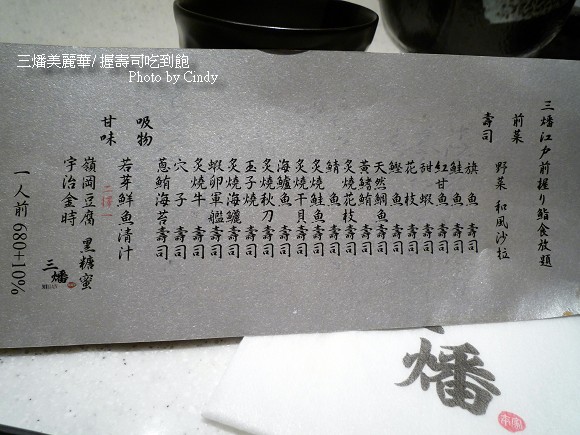 三燔美麗華/握壽司吃到飽
Photo by Cindy
三燔江戶前握り鮨食放題
前菜
野菜 和風沙拉
壽司
旗魚壽司
鮭魚壽司
紅甘魚壽司
甜蝦壽司
花枝壽司
鰹魚壽司
天然鯛魚壽司
黃鰭鮪壽司
炙燒花枝壽司
鯖魚壽司
炙燒干貝壽司
炙燒鮭魚壽司
海鱸魚壽司
炙燒秋刀壽司
玉子燒壽司
炙燒海鱺壽司
蝦卵軍艦壽司
炙燒牛壽司
穴子壽司
蔥鮪海苔壽司
吸物
若芽鮮魚清汁
甘味
二擇一
嶺岡豆腐 黑糖蜜
宇治金時
三燔
一人前 680+10%
燔
本家